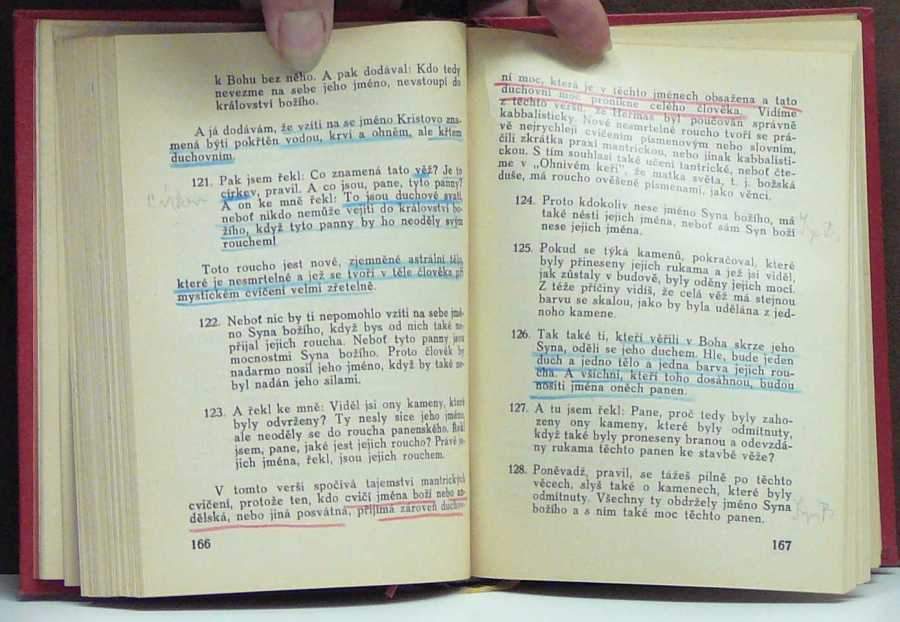 k Bohu bez něho. A pak dodával: Kdo tedy
nevezme na sebe jeho jméno, nevstoupí do
království božího.
A já dodávám, že vzíti na se jméno Kristovo zna-
mená býti pokřtěn vodou, krví a ohněm, ale křtem
duchovním.
121. Pak jsem řekl: Co znamená tato věž? Je to
církev, pravil. A co jsou, pane, tyto panny?
A on ke mně řekl: To jsou duchové svatí,
neboť nikdo nemůže vejíti do království bo-
žího, když tyto panny by ho neoděly svým
rouchem!
Toto roucho jest nové, zjemněné astrální tělo,
které je nesmrtelné a jež se tvoří v těle člověka při
mystickém cvičení velmi zřetelně.
122. Neboť nic by ti nepomohlo vzíti na sebe jmé-
no Syna božího, když bys od nich také ne-
přijal jejich roucha. Neboť tyto panny jsou
mocnostmi Syna božího. Proto člověk by
nadarmo nosil jeho jméno, když by také ne-
byl nadán jeho silami.
123. A řekl ke mně: Viděl jsi ony kameny, které
byly odvrženy? Ty nesly sice jeho jméno,
ale neoděly se do roucha panenského. Řekl
jsem, pane, jaké jest jejich roucho? Právě je-
jich jména, řekl, jsou jejich rouchem.
V tomto verši spočívá tajemství mantrických
cvičení, protože ten, kdo cvičí jména boží nebo an-
dělská, nebo jiná posvátná, přijímá zároveň duchov-
166
ní moc, která je v těchto jménech obsažena a tato
duchovní moc pronikne celého člověka. Vidíme
z těchto veršů, že Hermas byl poučován správně
kabbalisticky. Nové nesmrtelné roucho tvoří se prá-
vě nejrychleji cvičením písmenovým nebo slovním,
čili zkrátka praxí mantrickou, nebo jinak kabbalisti-
ckou. S tím souhlasí také učení tantrické, neboť čte-
me v „Ohnivém keři“, že matka světa, t. j. božská
duše, má roucho ověšené písmenami, jako věnci.
124. Proto kdokoliv nese jméno Syna božího, má
také nésti jejich jména, neboť sám Syn boží
nese jejich jména.
125. Pokud se týká kamenů, pokračoval, které
byly přineseny jejich rukama a jež jsi viděl,
jak zůstaly v budově, byly oděny jejich mocí.
Z téže příčiny vidíš, že celá věž má stejnou
barvu se skalou, jako by byla udělána z jed-
noho kamene.
126. Tak také ti, kteří věřili v Boha skrze jeho
Syna, oděli se jeho duchem. Hle, bude jeden
duch a jedno tělo a jedna barva jejich rou-
cha. A všichni, kteří toho dosáhnou, budou
nositi jména oněch panen.
127. A tu jsem řekl: Pane, proč tedy byly zaho-
zeny ony kameny, které byly odmítnuty,
když také byly proneseny branou a odevzdá-
ny rukama těchto panen ke stavbě věže?
128. Poněvadž, pravil, se tážeš pilně po těchto
věcech, slyš také o kamenech, které byly
odmítnuty. Všechny ty obdržely jméno Syna
božího a s ním také moc těchto panen.
167